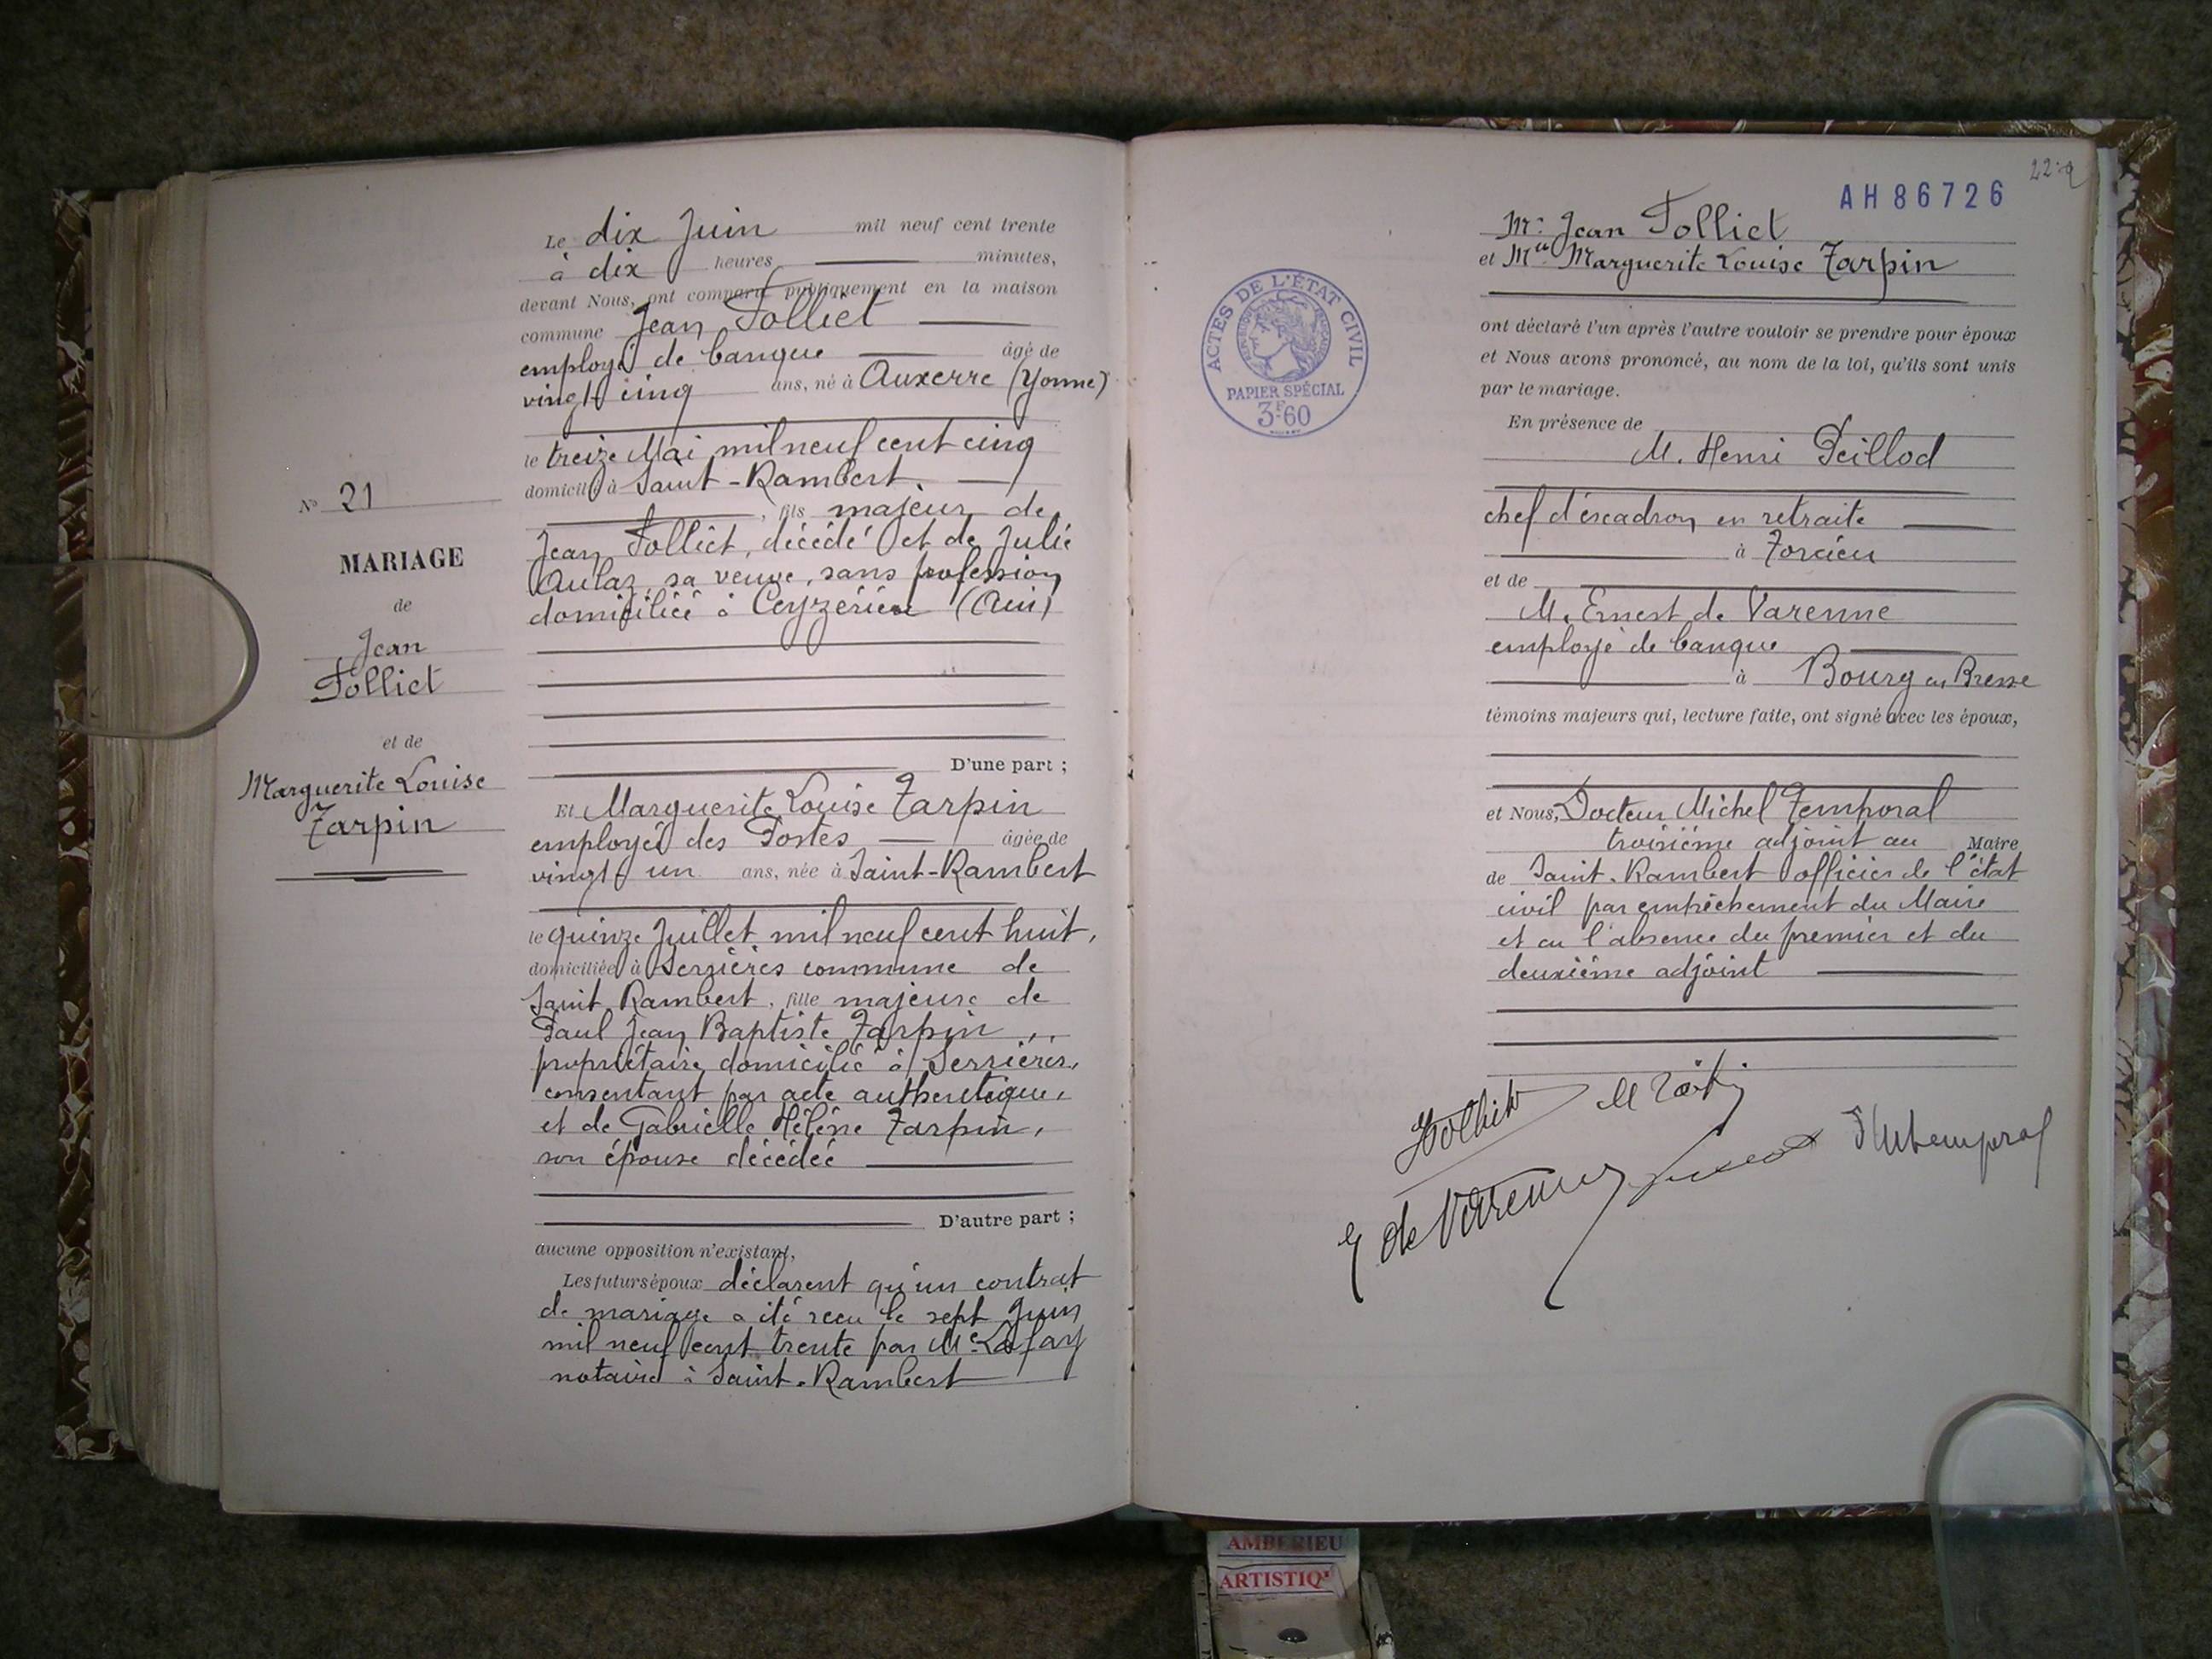 Le dix Juin mil neuf cent trente
à dix heures minutes,
devant Nous, ont comparu publiquement en la maison
commune Jean Folliet
employé de banque âgé de
vingt cinq ans, né à Auxerre (Yonne)
le treize Mai mil neuf cent cinq
domicilié à Saint-Rambert
, fils majeur de
Jean Folliet, décédé et de Julie
Aulaz, sa veuve, sans profession
domiciliée à Ceyzérieu (Ain)
D'une part ;
Et Marguerite Louise Tarpin
employée des Postes âgée de
vingt un ans, née à Saint-Rambert
le quinze Juillet mil neuf cent huit,
domiciliée à Serrières commune de
Saint Rambert, fille majeure de
Paul Jean Baptiste Tarpin,
propriétaire domicilié à Serrières,
consentant par acte authentique,
et de Gabrielle Hélène Tarpin,
son épouse décédée
D'autre part ;
aucune opposition n'existant,
Les futurs époux déclarent qu'un contrat
de mariage a été reçu le sept Juin
mil neuf cent trente par Me Lafay
notaire à Saint-Rambert
No 21
MARIAGE
de
Jean
Folliet
et de
Marguerite Louise
Tarpin
AH 86726
ACTES DE L'ÉTAT CIVIL
RÉPUBLIQUE FRANÇAISE
PAPIER SPÉCIAL
3F60
Mr Jean Folliet
et Mlle Marguerite Louise Tarpin
ont déclaré l'un après l'autre vouloir se prendre pour époux
et Nous avons prononcé, au nom de la loi, qu'ils sont unis
par le mariage.
En présence de
M. Henri Peillod
chef d'escadron en retraite
à Torcieu
et de
M. Ernest de Varenne
employé de banque
à Bourg en Bresse
témoins majeurs qui, lecture faite, ont signé avec les époux,
et Nous, Docteur Michel Temporal
troisième adjoint au Maire
de Saint-Rambert officier de l'état
civil par empêchement du Maire
et en l'absence du premier et du
deuxième adjoint
E de Varenne
AMBERIEU
ARTISTIQ